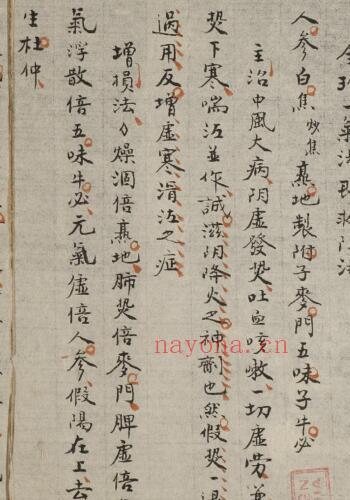 人参白焦炒焦熟地製附子麥門五味子牛必
主治中風大病阴虛發熒吐血咳嗽一切虛劳
熒下寒喘汤並作誠滋阴降火之神劑也然假熒一退
過用反增虛寒滑泻之症
增損法〻燥涸倍熟地肺熒倍麥門脾虛倍
氣浮散倍五味牛必元氣虛倍人参假陽在上去
生杜仲
nayona.cn